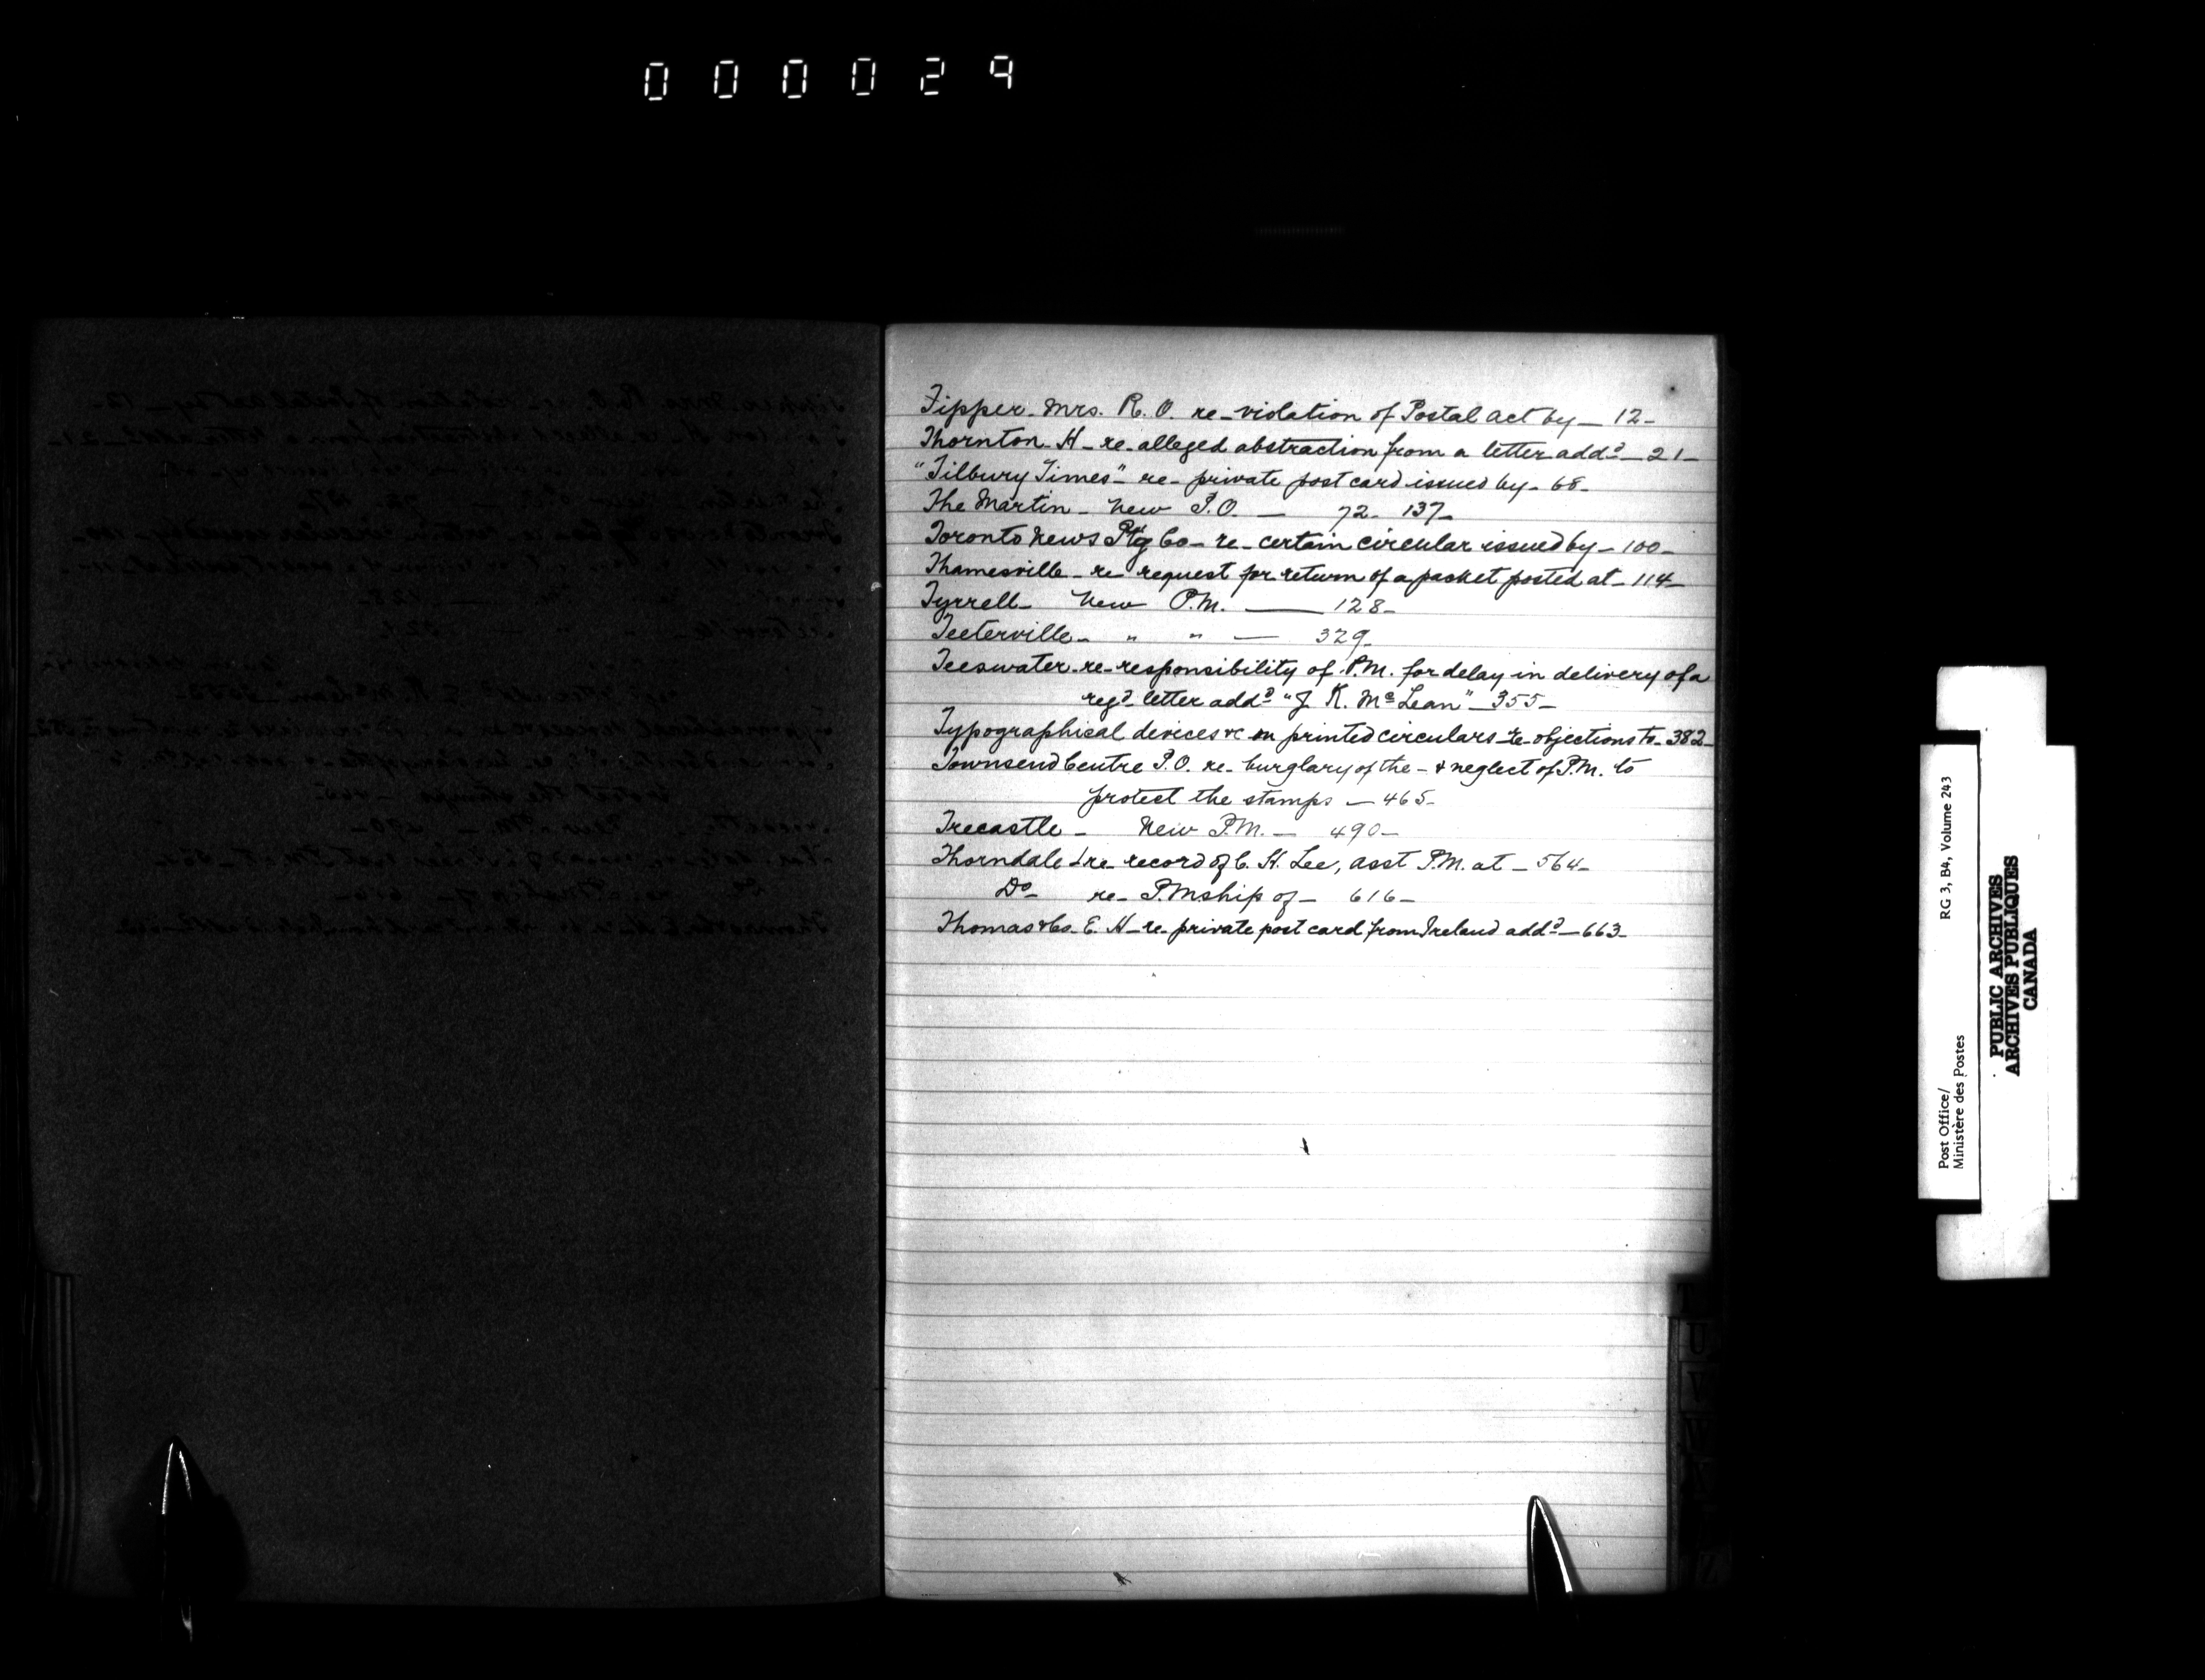 000029
Tipper. Mrs. R. O. re_violation of Postal Act by_ 12_
Thornton_H_re_alleged abstraction from a letter addd_21_
"Tilbury Times"_ re_ private post card issued by_ 68_
The Martin_ New P.O. _ 72_ 137_
Toronto News Ptg Co_ re_ certain circular issued by_100_
Thamesville_re_request for return of a packet posted at_114_
Tyrrell_ New P.M. _ 128_
Teeterville_ " " _ 329_
Teeswater_re_responsibility of P.M. for delay in delivery of a
regd. letter addd "J. K. McLean"_355_
Typographical devices &c on printed circulars_re_objections to_382_
Townsend Centre P.O. re_burglary of the_& neglect of P.M. to
protect the stamps _465_
Trecastle_ New P.M._ 490_
Thorndale_re_record of C. H. Lee, asst P.M. at_564_
Do_ re_P.Mship of_ 616_
Thomas & Co. E. H_re_private post card from Ireland addd_663_
U
V
W
Z
Post Office/
Ministère des Postes
RG 3, B4, Volume 243
PUBLIC ARCHIVES
ARCHIVES PUBLIQUES
CANADA